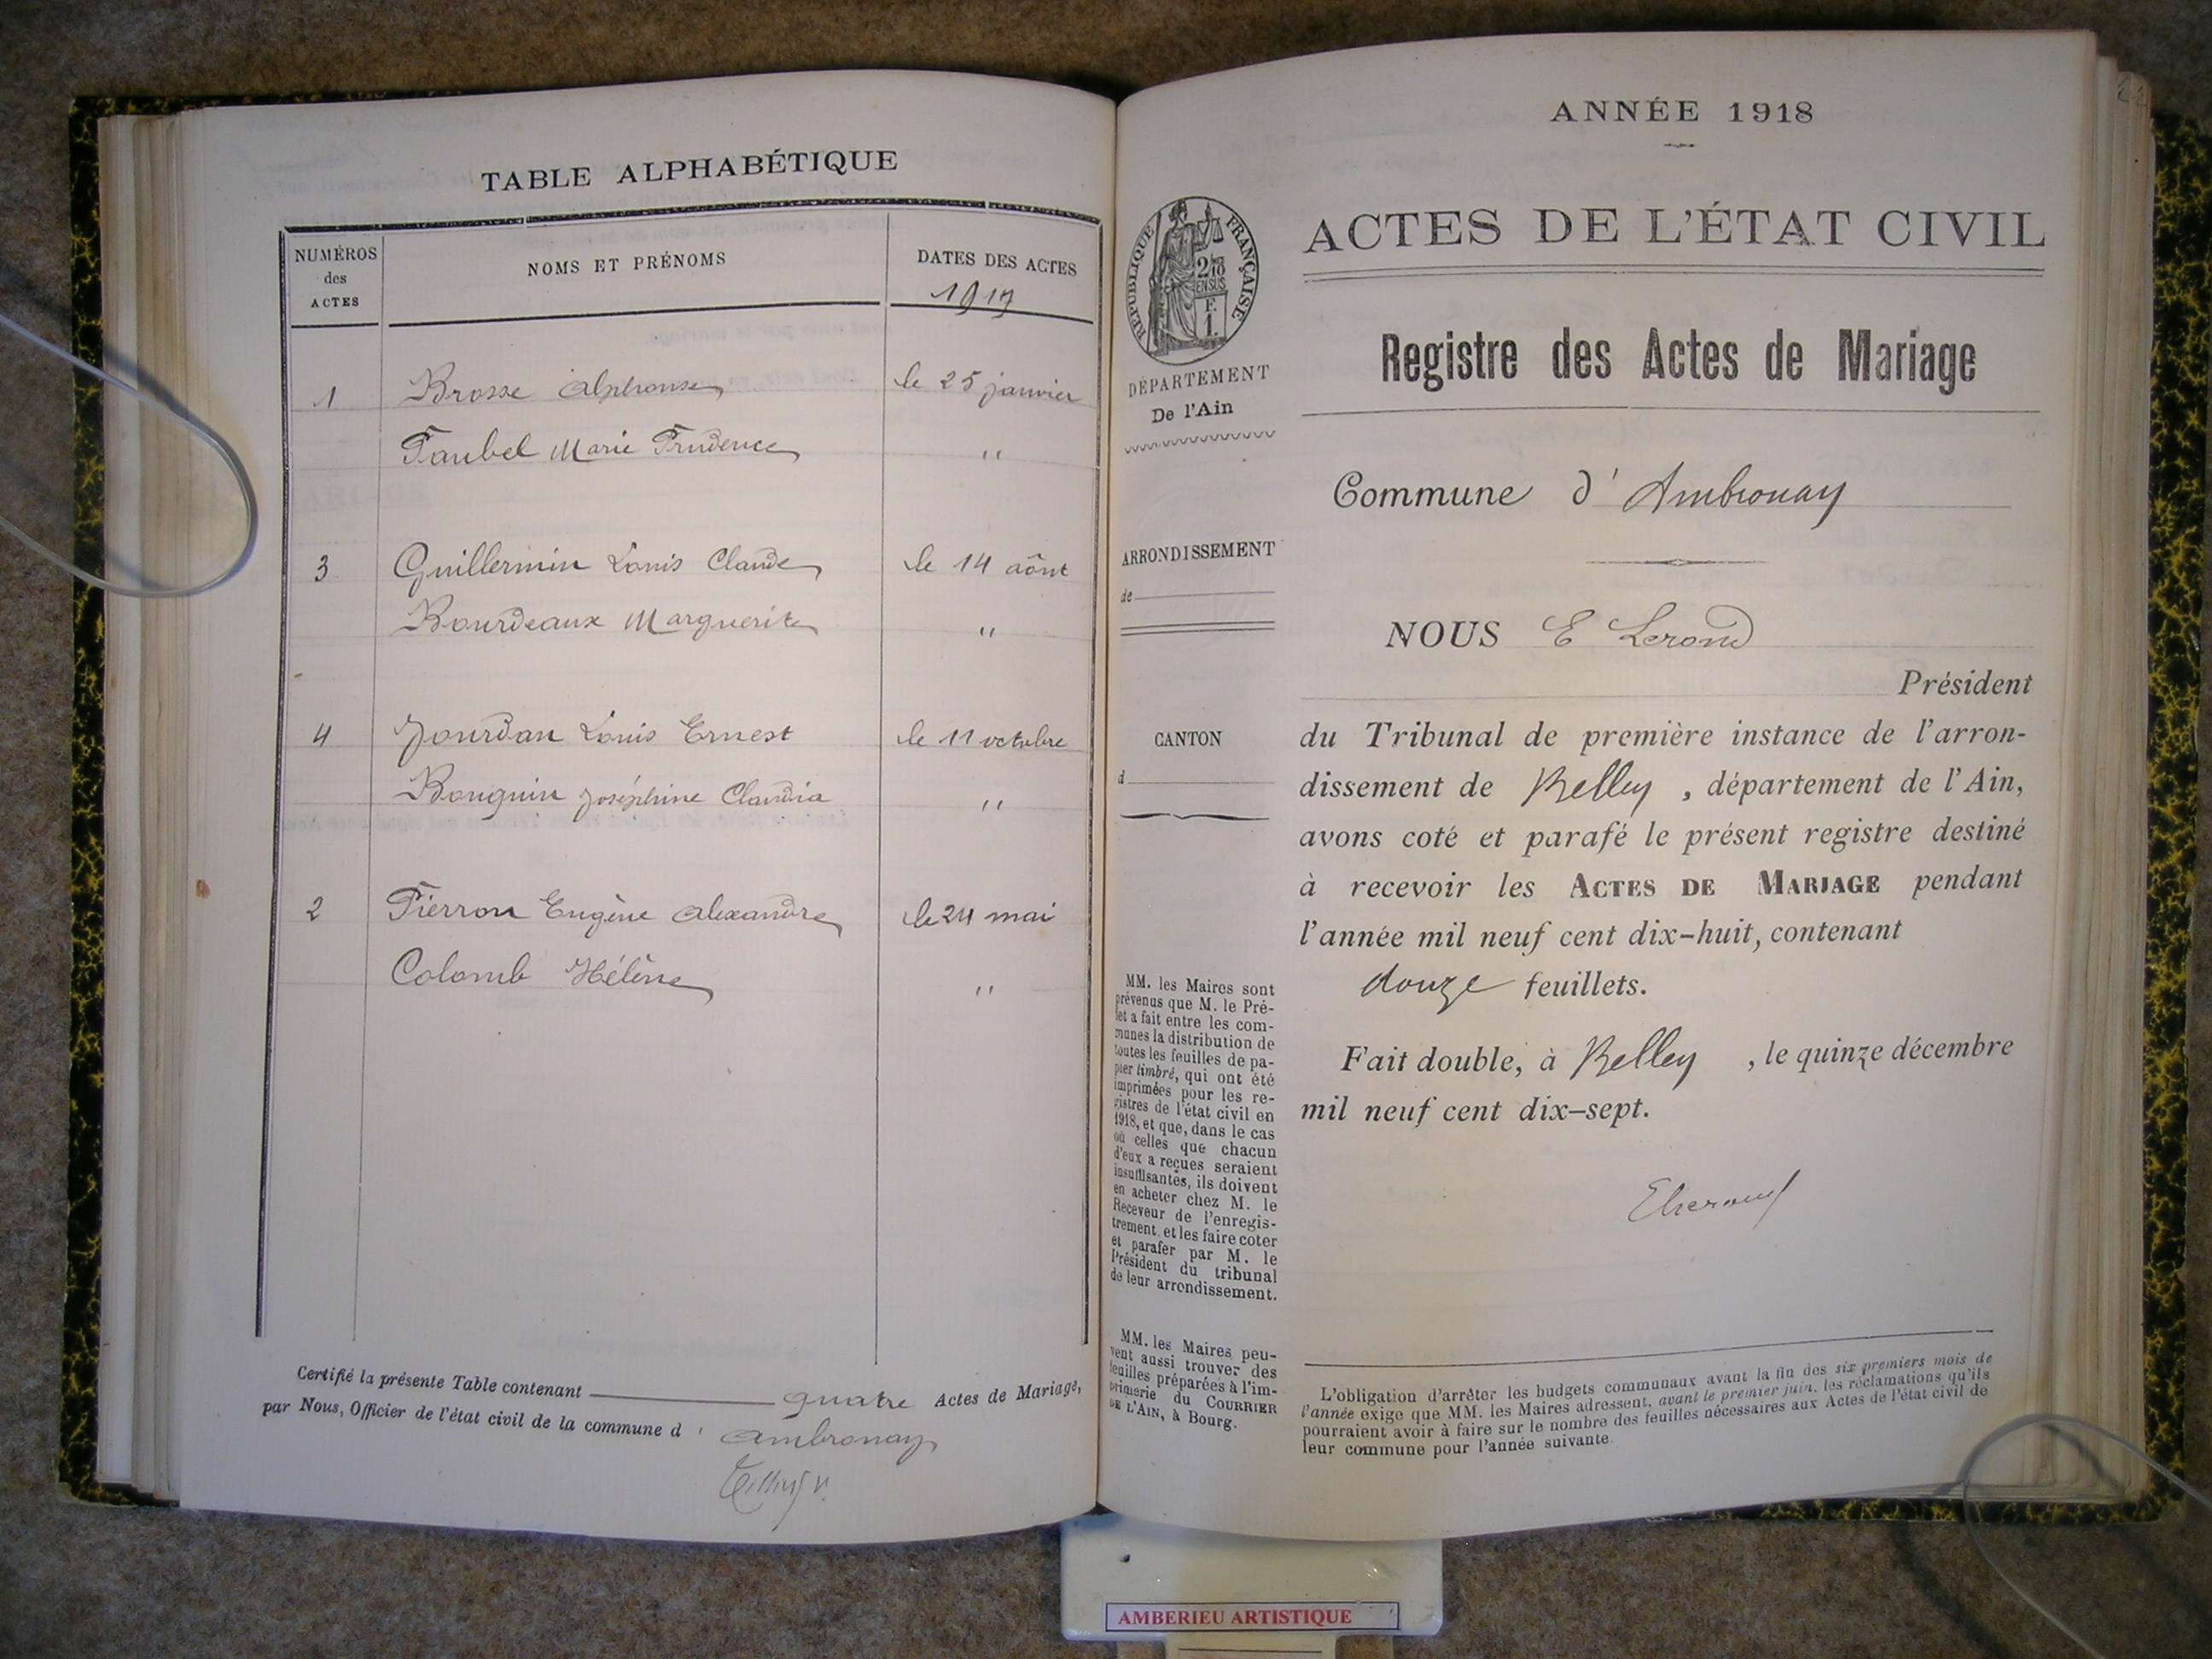 TABLE ALPHABÉTIQUE
NUMÉROS des ACTES
NOMS ET PRÉNOMS
DATES DES ACTES
1917
1 Brosse Alphonse le 25 janvier
Faubel Marie Prudence "
3 Guillermin Louis Claude le 14 août
Bourdeaux Marguerite "
4 Jourdan Louis Ernest le 11 octobre
Bouguin Joséphine Claudia "
2 Pierron Eugène Alexandre le 24 mai
Colomb Hélène "
Certifié la présente Table contenant quatre Actes de Mariage,
par Nous, Officier de l'état civil de la commune d' Ambronay
ANNÉE 1918
RÉPUBLIQUE FRANÇAISE
DÉPARTEMENT
De l'Ain
ARRONDISSEMENT
de
CANTON
d
MM. les Maires sont
prévenus que M. le Pré-
fet a fait entre les com-
munes la distribution de
toutes les feuilles de pa-
pier timbré, qui ont été
imprimées pour les re-
gistres de l'état civil en
1918, et que, dans le cas
où celles que chacun
d'eux a reçues seraient
insuffisantes, ils doivent
en acheter chez M. le
Receveur de l'enregis-
trement et les faire coter
et parafer par M. le
Président du tribunal
de leur arrondissement.
MM. les Maires peu-
vent aussi trouver des
feuilles préparées à l'im-
primerie du COURRIER
DE L'AIN, à Bourg.
ACTES DE L'ÉTAT CIVIL
Registre des Actes de Mariage
Commune d' Ambronay
NOUS E Lerond
Président
du Tribunal de première instance de l'arron-
dissement de Belley, département de l'Ain,
avons coté et parafé le présent registre destiné
à recevoir les ACTES DE MARIAGE pendant
l'année mil neuf cent dix-huit, contenant
douze feuillets.
Fait double, à Belley, le quinze décembre
mil neuf cent dix-sept.
L'obligation d'arrêter les budgets communaux avant la fin des six premiers mois de
l'année exige que MM. les Maires adressent, avant le premier juin, les réclamations qu'ils
pourraient avoir à faire sur le nombre des feuilles nécessaires aux Actes de l'état civil de
leur commune pour l'année suivante.
AMBERIEU ARTISTIQUE